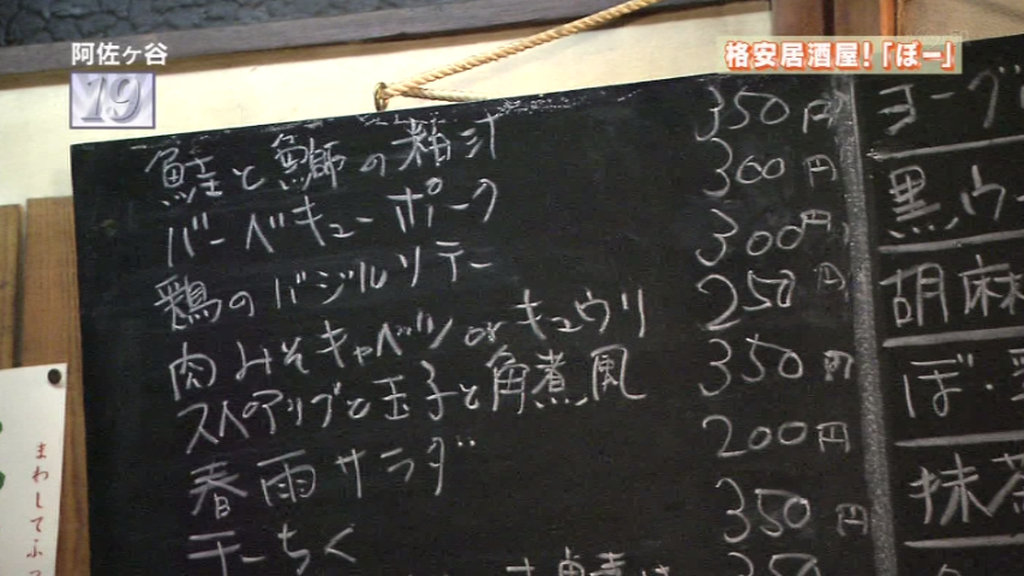 阿佐ヶ谷
19
格安居酒屋!「ぼー」
鮭と鰤の粕汁 350円
バーベキューポーク 300円
鶏のバジルソテー 300円
肉みそキャベツorキュウリ 250円
スペアリブと玉子と角煮風 350円
春雨サラダ 200円
チーちく 350円
350
ヨーグ
黒ウ
胡麻
ぼ・
抹茶
まわしてふ